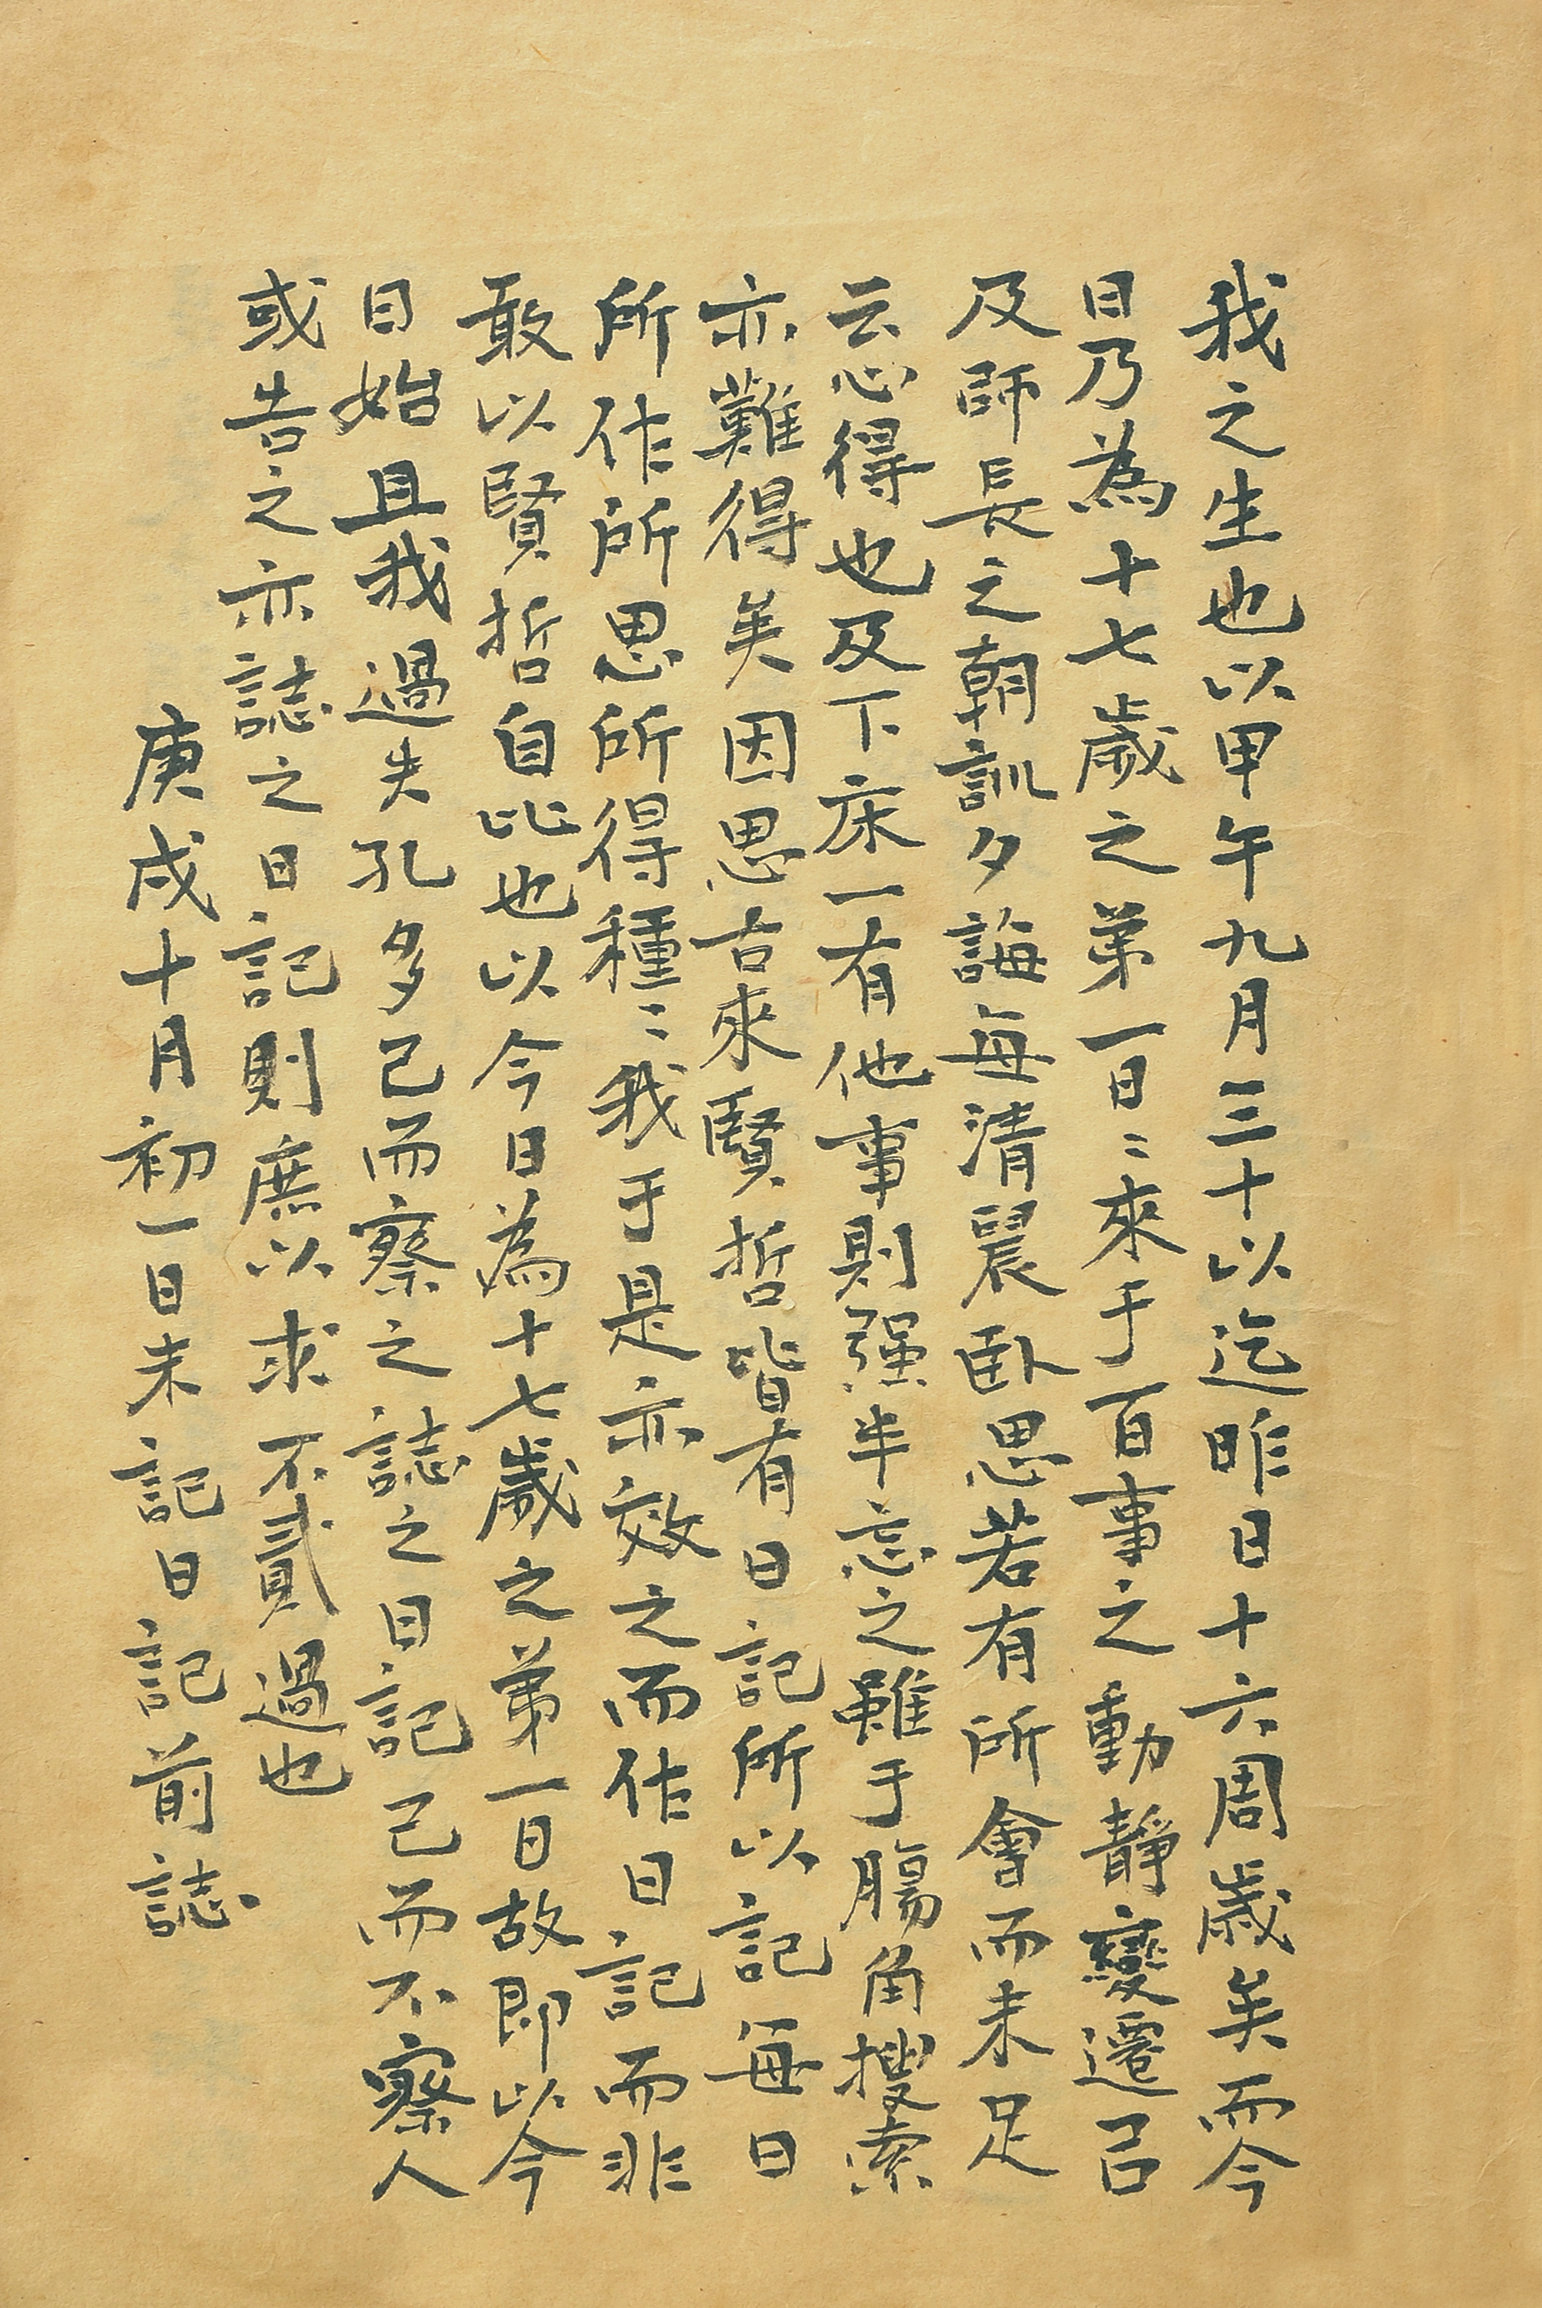 我之生也以甲午九月三十以迄昨日十六周歲矣而今
日乃為十七歲之第一日〻來于百事之動靜變遷以
及師長之朝訓夕誨每清晨臥思若有所會而未足
云心得也及下床一有他事則强半忘之雖于腸角搜索
亦難得矣因思古來賢哲皆有日記所以記每日
所作所思所得種〻我于是亦效之而作日記而非
敢以賢哲自比也以今日為十七歲之第一日故即以今
日始且我過失孔多己而察之誌之日記己而不察人
或告之亦誌之日記則庶以求不貳過也
庚戌十月初一日未記日記前誌